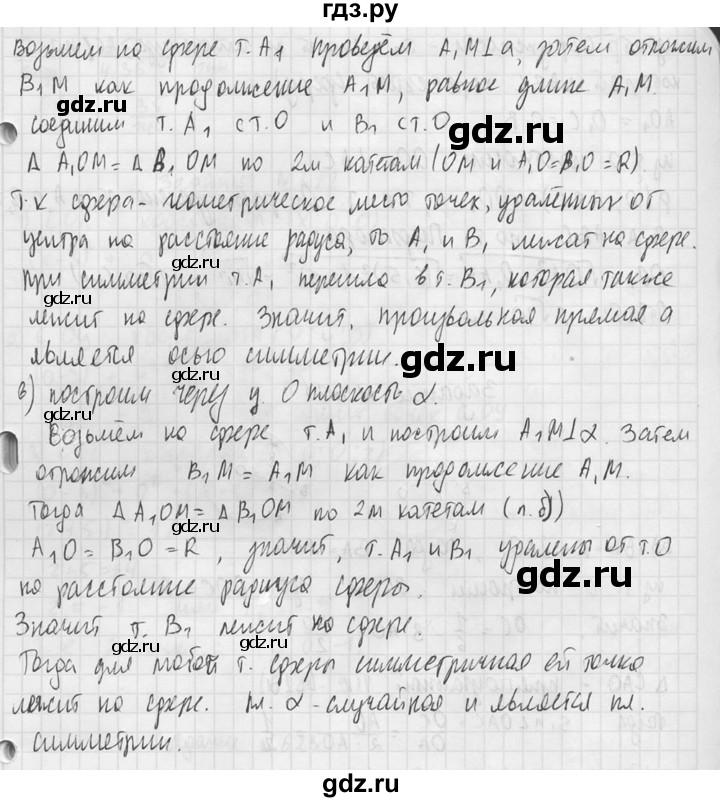 гдз.ру
Возьмем на сфере т. A₁ проведём A₁M⊥a, затем отложим
B₁M как продолжение A₁M, равное длине A₁M.
соединим т. A₁ с т.O и B₁ с т.O
Δ A₁OM = Δ B₁OM по 2м катетам (OM и A₁O=B₁O=R)
Т.к сфера - геометрическое место точек, удалённых от
центра на расстояние радиуса, то A₁ и B₁ лежат на сфере.
При симметрии т. A₁ перешла в т. B₁, которая также
лежит на сфере. Значит, произвольная прямая a
является осью симметрии.
в) построим через ц. O плоскость α.
Возьмём на сфере т. A₁ и построим A₁M⊥α. Затем
отложим B₁M = A₁M как продолжение A₁M.
Тогда Δ A₁OM = Δ B₁OM по 2м катетам (п. б))
A₁O = B₁O = R, значит, т. A₁ и B₁ удалены от т.O
на расстояние радиуса сферы.
Значит т. B₁ лежит на сфере.
Тогда для любой т. сферы симметричная ей точка
лежит на сфере. пл. α - случайная и является пл.
симметрии.
gdz.ru
gdz.ru
gdz.ru
gdz.ru
gdz.ru
gdz.ru
gdz.ru
gdz.ru
gdz.ru
gdz.ru
gdz.ru
gdz.ru
gdz.ru
gdz.ru